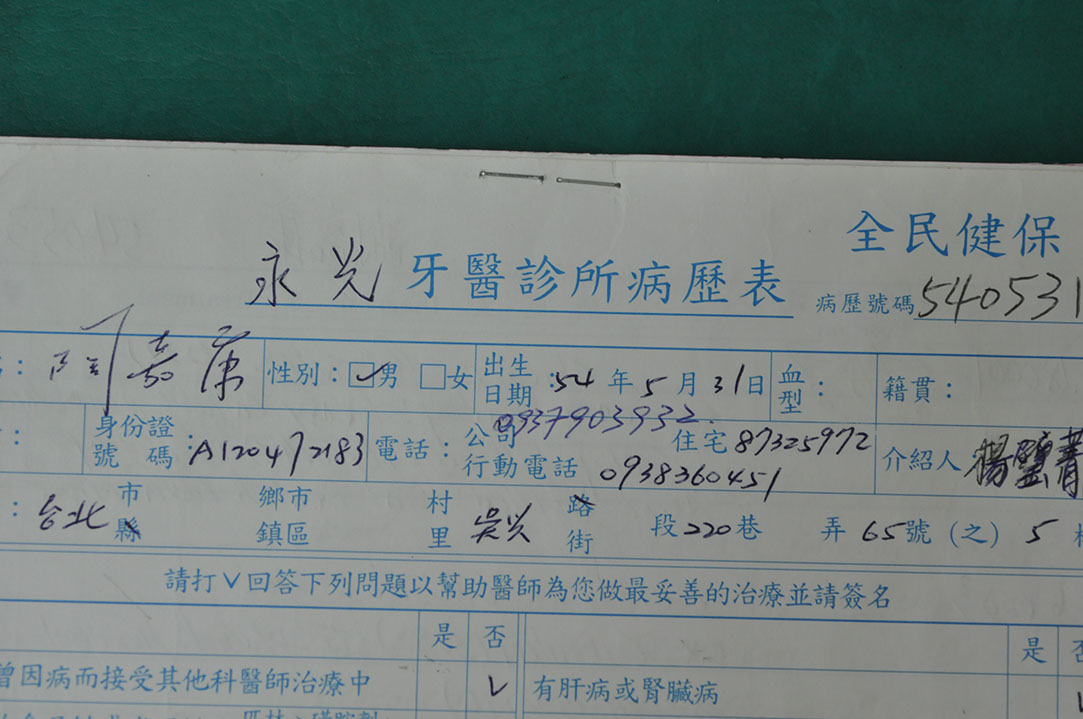 全民健保
永光牙醫診所病歷表 病歷號碼 540531
： 嘉 性別：☑男 □女 出生日期：54年5月31日 血型： 籍貫：
： 身份證號碼：A120472183 電話：公司 0937903932 住宅 87325972 行動電話 0938360451 介紹人 楊
：台北 市縣 鄉市鎮區 村里 吳興 路街 段220巷 弄65號（之）5
請打∨回答下列問題以幫助醫師為您做最妥善的治療並請簽名
是 否 是 否
曾因病而接受其他科醫師治療中 ∨ 有肝病或腎臟病